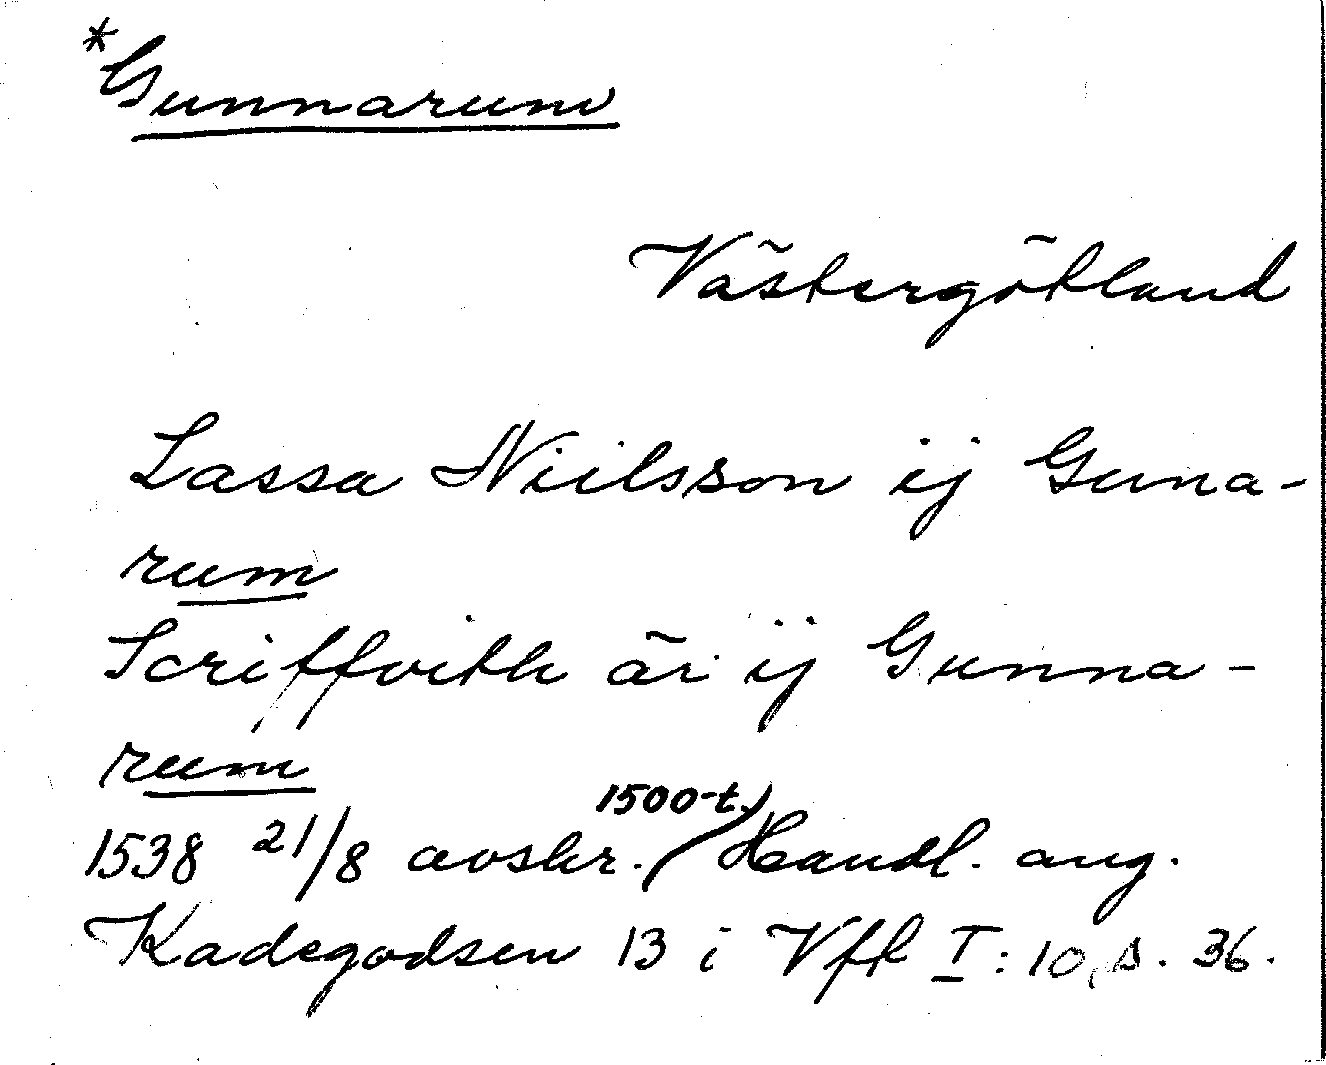 *Gunnarum
Västergötland
Lassa Niilsson ij Guna-
rum
Scriffvith är ij Gunna-
rum
1538 21/8 avskr. (1500-t.) Handl. ang.
Kadegodsen 13 i Vfl I:10, s. 36.